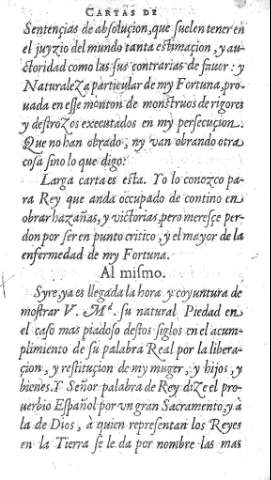 CARTAS DE
Sentençias de absoluçion, que suelen tener en
el juyzio del mundo tanta estimaçion, y au-
ctoridad como las sus contrarias de fauor: y
Naturaleza particular de my Fortuna, pro-
uada en esse monton de monstruos de rigores
y destrozos executados en my persecuçion.
Que no han obrado, ny van obrando otra
cosa sino lo que digo.
Larga carta es esta. Yo lo conozco pa-
ra Rey que anda occupado de contino en
obrar hazañas, y victorias, pero meresçe per-
don por ser en punto critico, y el mayor de la
enfermedad de my Fortuna.
Al mismo.
Syre, ya es llegada la hora y coyuntura de
mostrar V. Md. su natural Piedad en
el caso mas piadoso destos siglos en el acum-
plimiento de su palabra Real por la libera-
çion, y restituçion de my muger, y hijos, y
bienes. Y Señor palabra de Rey dize el pro-
uerbio Español por vn gran Sacramento, y à
la de Dios, à quien representan los Reyes
en la Tierra se le da por nombre las mas